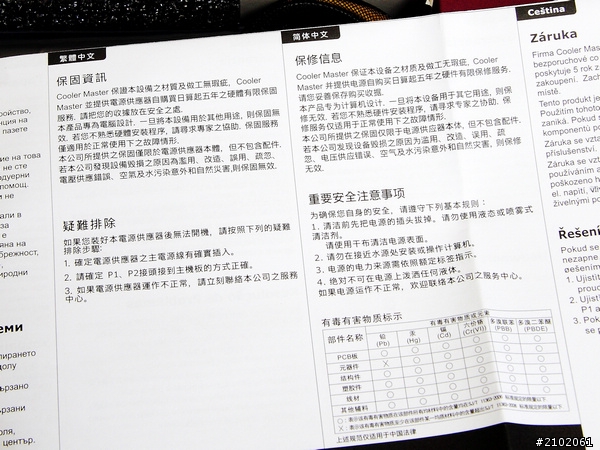 ройство,
пазете
ят на това
не сте
помощ.
ни
али в
за
бреж­ност,
еми
тирането
долу
ързано
ързани
център.
繁體中文
保固資訊
Cooler Master 保證本設備之材質及做工無瑕疵, Cooler
Master 並提供電源供應器自購買日算起五年之硬體有限保固
服務, 請把您的收據放在安全之處.
本產品專為電腦設計, 一旦將本設備用於其他用途, 則保固無
效. 若您不熟悉硬體安裝程序, 請尋求專家之協助. 保固服務
僅適用於正常使用下之故障情形.
本公司所提供之保固僅限於電源供應器本體, 但不包含配件.
若本公司發現設備毀損之原因為濫用、改造、誤用、疏忽、
電壓供應錯誤、空氣及水污染意外和自然災害,則保固無效.
疑難排除
如果您裝好本電源供應器後無法開機, 請按照下列的疑難
排除步驟:
1. 確定電源供應器之主電源線有確實插入。
2. 請確定 P1、P2接頭接到主機板的方式正確。
3. 如果電源供應器運作不正常, 請立刻聯絡本公司之服務
中心。
简体中文
保修信息
Cooler Master 保证本设备之材质及做工无瑕疵, Cooler
Master 并提供电源自购买日算起五年之硬件有限保修服务.
请您妥善保存购买收据.
本产品专为计算机设计. 一旦将本设备用于其它用途, 则保
修无效. 若您不熟悉硬件安装程序, 请寻求专家之协助. 保
修服务仅适用于正常使用下之故障情形.
本公司所提供之保修仅限于电源供应器本体, 但不包含配件.
若本公司发现设备毁损之原因为滥用、改造、误用、疏
忽、电压供应错误、空气及水污染意外和自然灾害, 则保修
无效.
重要安全注意事项
为确保您自身的安全, 请遵守下列基本规则：
1. 清洁前先把电源的插头拔掉。请勿使用液态或喷雾式
清洁剂。
请使用干布清洁电源表面。
2. 请勿在接近水源处安装或操作计算机。
3. 电源的电力来源需依照额定标签指示。
4. 绝对不可在电源上泼洒任何液体。
如果电源运作不正常, 欢迎联络本公司之服务中心。
有毒有害物质标示
有毒有害物质或元素
部件名称 铅(Pb) 汞(Hg) 镉(Cd) 六价铬(Cr(VI)) 多溴联苯(PBB) 多溴二苯醚(PBDE)
PCB板 ○ ○ ○ ○ ○ ○
元器件 X ○ ○ ○ ○ ○
结构件 ○ ○ ○ ○ ○ ○
塑胶件 ○ ○ ○ ○ ○ ○
线材 ○ ○ ○ ○ ○ ○
其他辅料 ○ ○ ○ ○ ○ ○
上述规范仅适用于中国法律
Čeština
Záruka
Firma Cooler Mas
bezporuchové co
poskytuje 5 rok z
zakoupení. Zach
Tento produkt je
Použitím tohoto
zaniká. Pokud s
komponentů po
Záruka se vzta
příslušenství.
Záruka se vzta
el. napětí, vliv
používáním a
poškozeno h
živelnými po
Řešení
Pokud se
nezapne
1. Ujistit
2. Ujisti
P1 a
3. Poka
#2102061